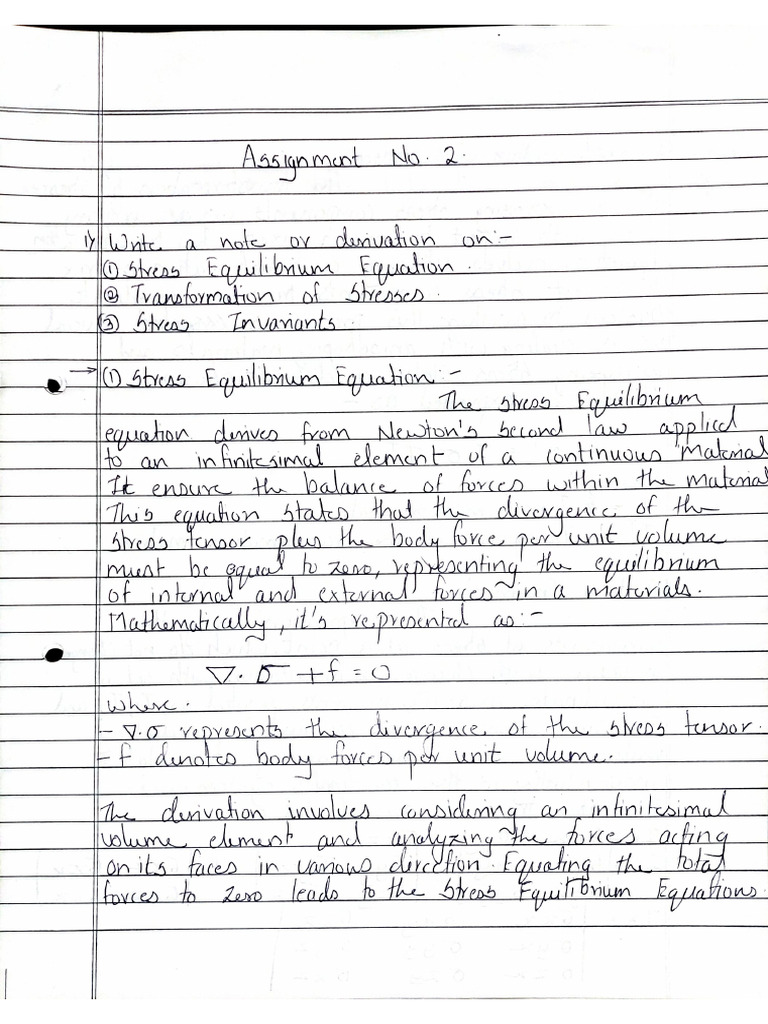 Assignment No. 2.
1) Write a note or derivation on:-
① Stress Equilibrium Equation.
② Transformation of Stresses.
③ Stress Invariants.
→ ① Stress Equilibrium Equation:-
The stress Equilibrium
equation derives from Newton's second law applied
to an infinitesimal element of a continuous material
It ensure the balance of forces within the material
This equation states that the divergence of the
stress tensor plus the body force per unit volume
must be equal to zero, representing the equilibrium
of internal and external forces in a materials.
Mathematically, it's represented as:-
∇. σ + f = 0
where.
- ∇.σ represents the divergence of the stress tensor.
- f denotes body forces per unit volume.
The derivation involves considering an infinitesimal
volume element and analyzing the forces acting
on its faces in various direction. Equating the total
forces to zero leads to the stress Equilibrium Equations.